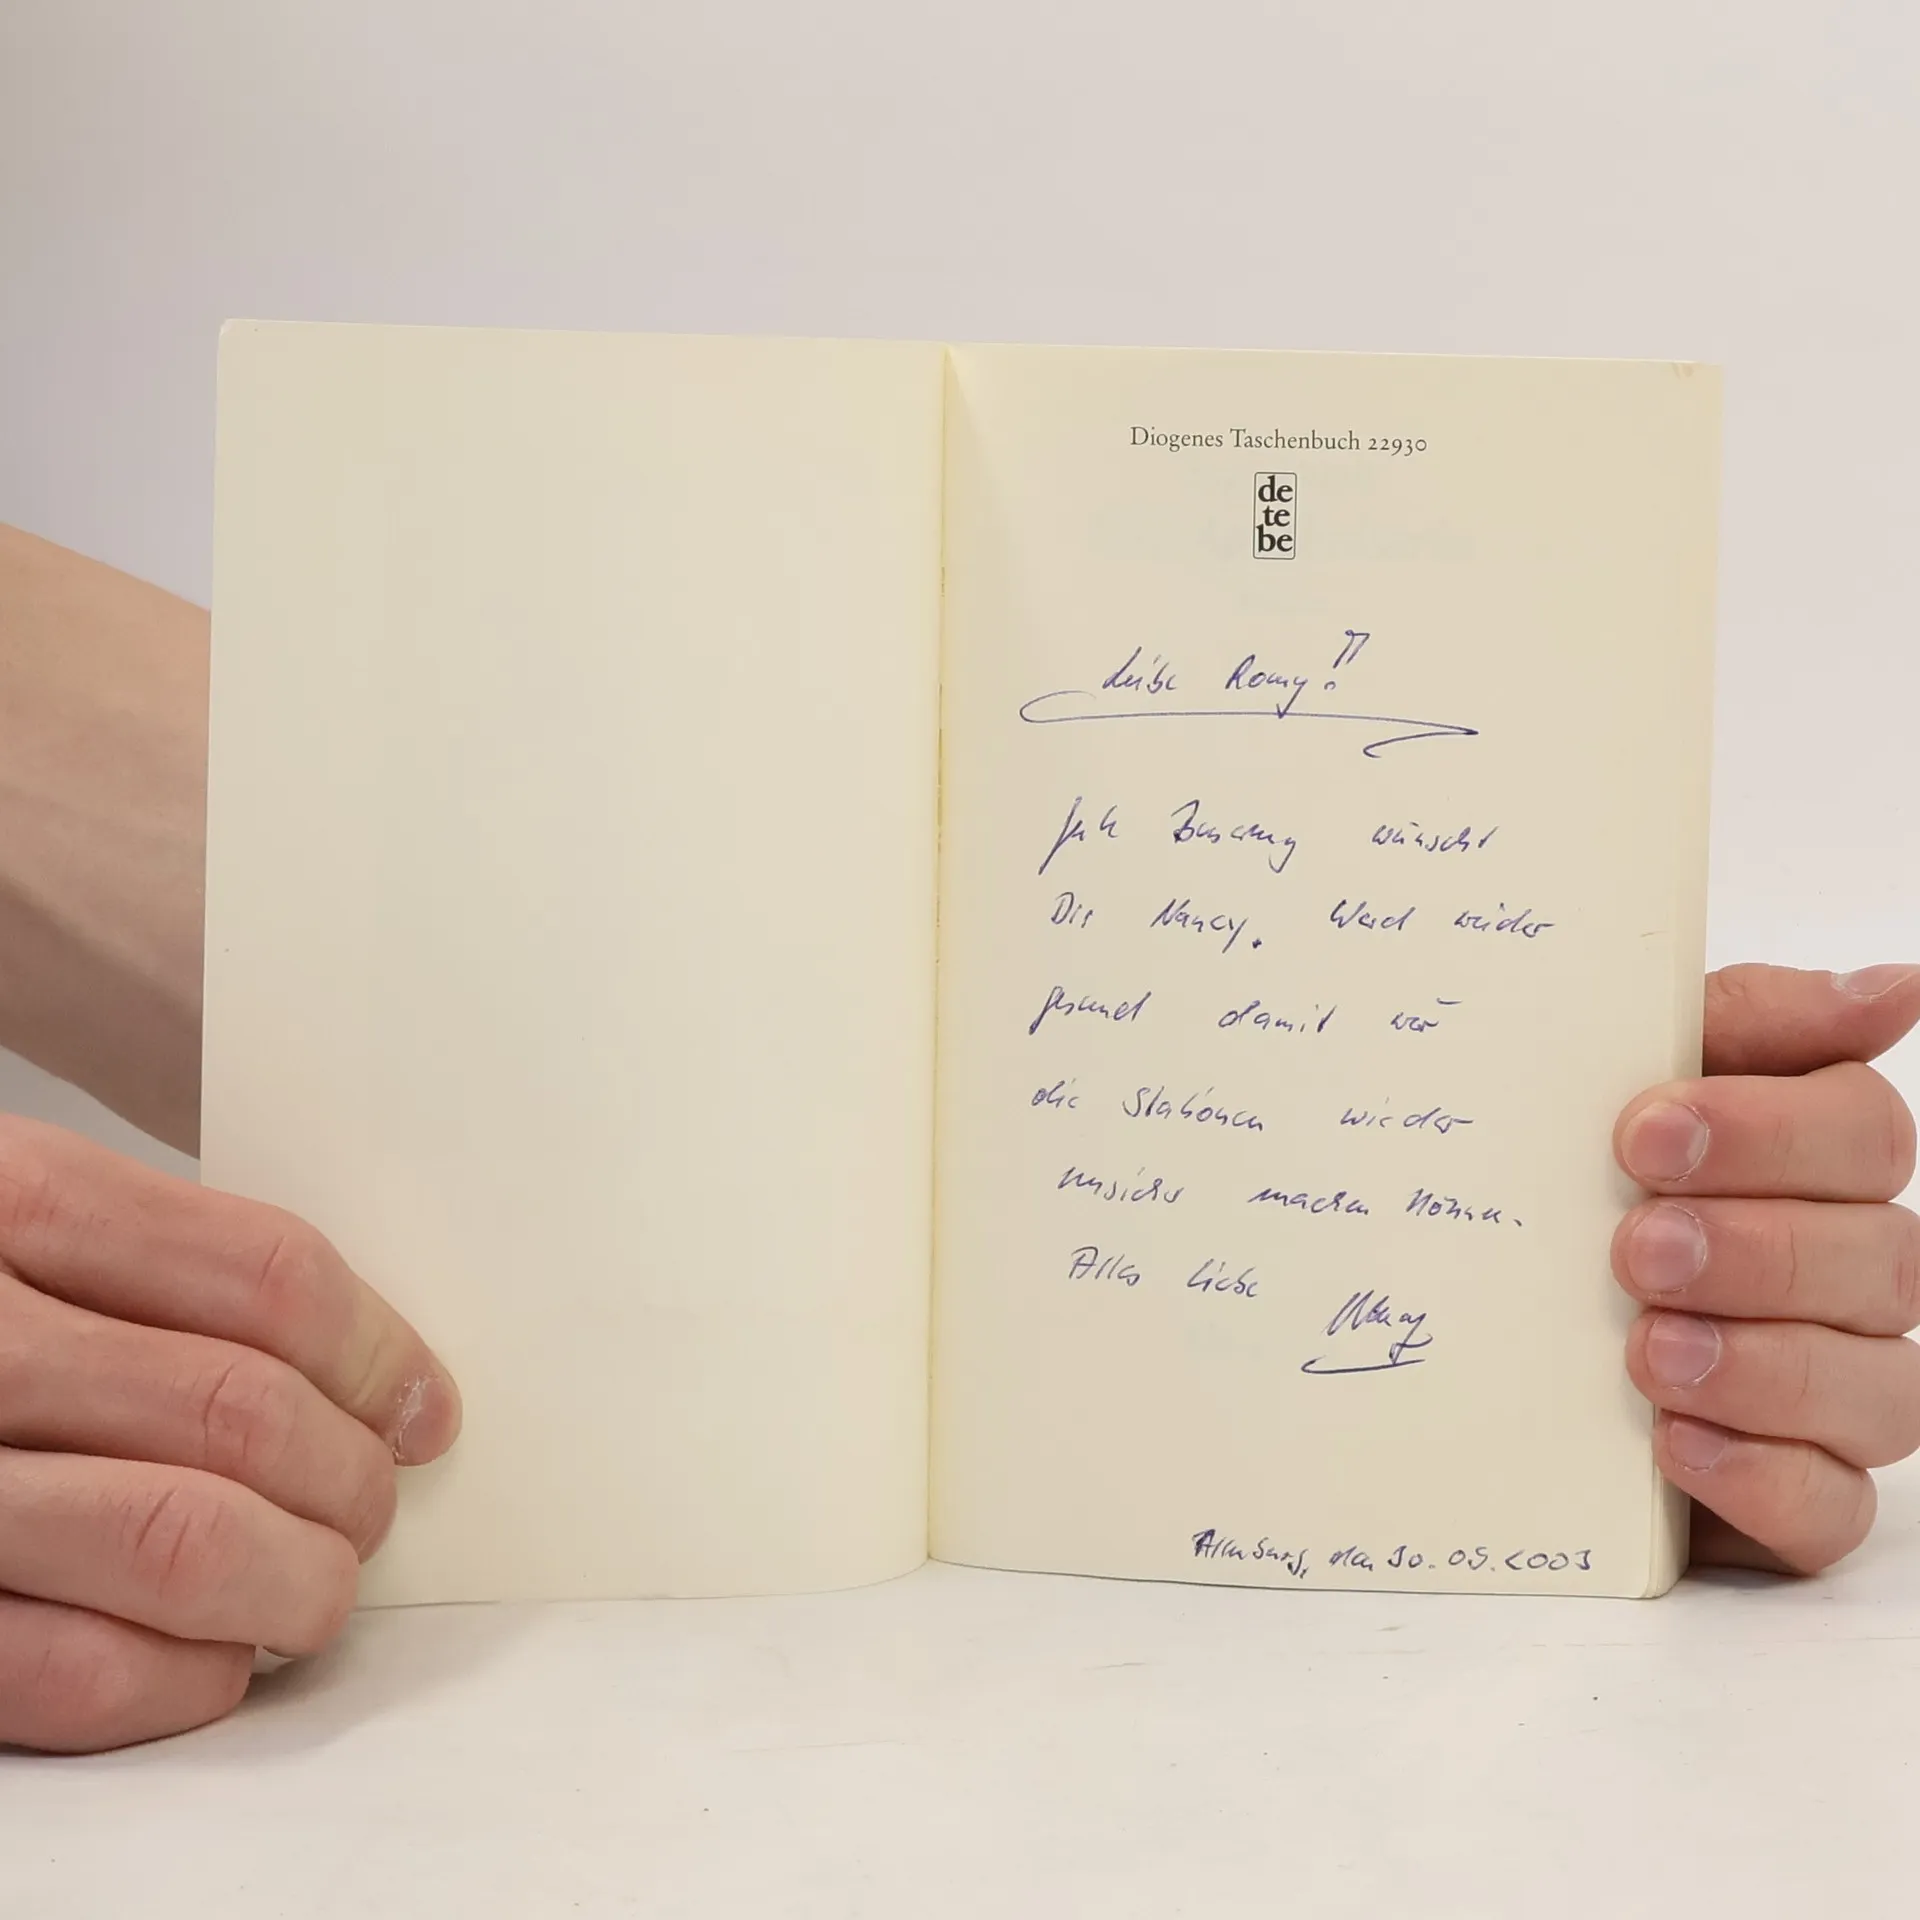 Diogenes Taschenbuch 22930
de
te
be
Liebe Romy!!
Gute Besserung wünscht
Dir Nancy. Werd wieder
gesund damit wir
die Stationen wieder
unsicher machen können.
Alles Liebe Nancy
Altenburg, den 30.05.2003